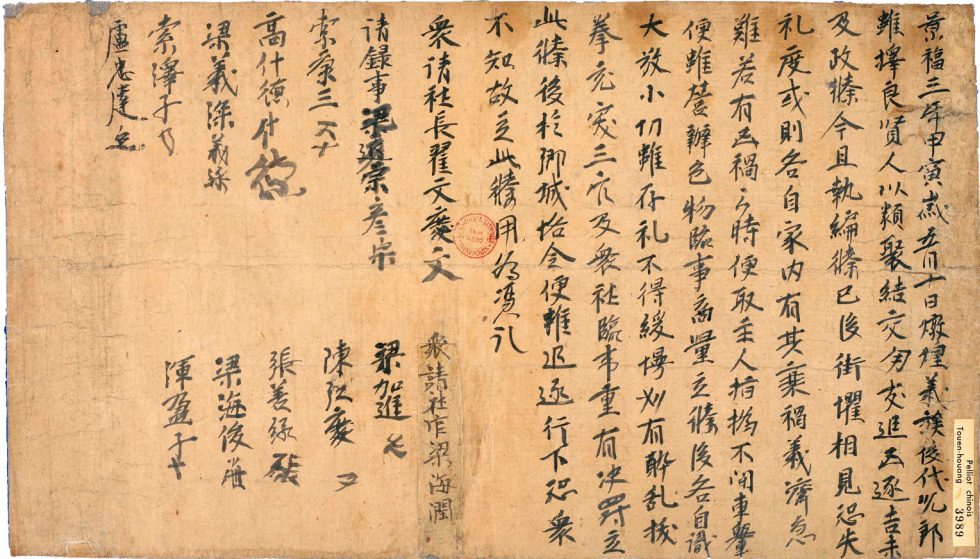 景福三年甲寅歲五月十日燉煌義族後代兒郎
雖擇良賢人以類聚結交朋友追凶逐吉未
及政條今且執編條已後街懼相見恐失
礼度或則各自家內有其衰禍義濟急
難若有凶禍之時便取主人指撝不問車轝
便雖營辦色物臨事商量立條後各自識
大敬小切雖存礼不得緩慢如有醉乱拔
拳充突三官及衆社臨事重有決罸立
此條後於鄉城恪令便雖追逐行下恐衆
不知故立此條用為憑記
衆請社長翟文慶 文
衆請社官梁海潤
請錄事梁 彦宗
索康三
高什德
梁義深 義深
索澤子
盧忠達
梁加進
陳江慶
張善緣
梁海俊
渾盈子
Pelliot chinois
Touen-houang 3989